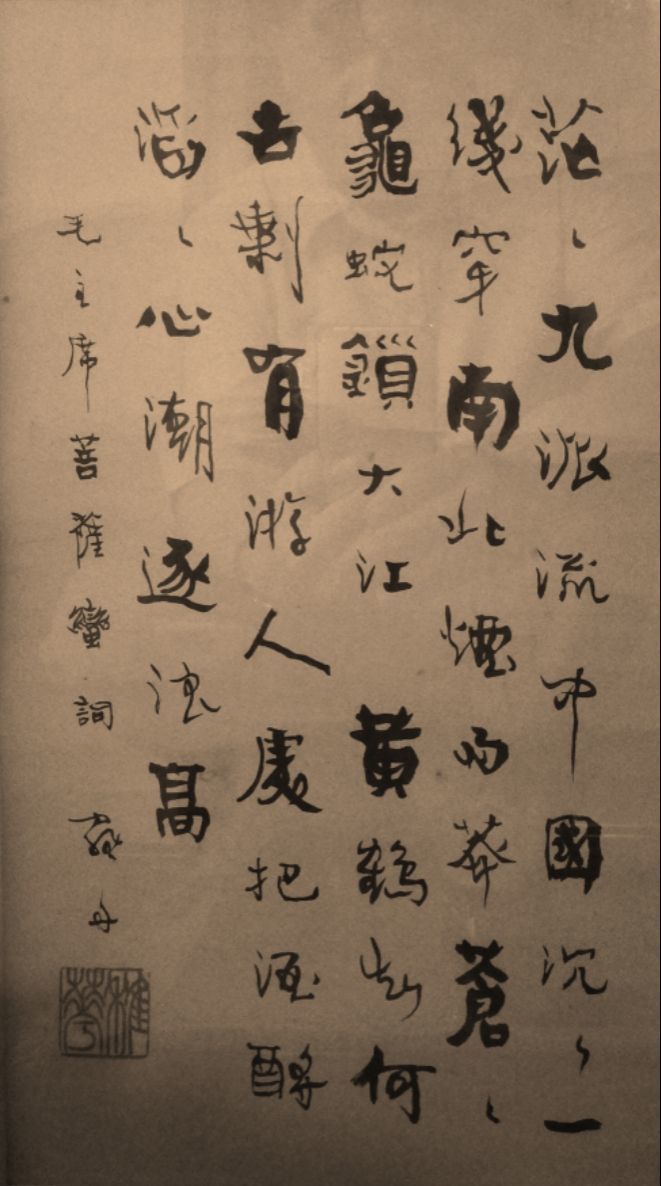 茫〻九派流中國沉〻一
綫穿南北煙雨莽蒼〻
龜蛇鎖大江黄鶴知何
去剩有游人處把酒酹
滔〻心潮逐浪髙
毛主席菩薩蠻詞